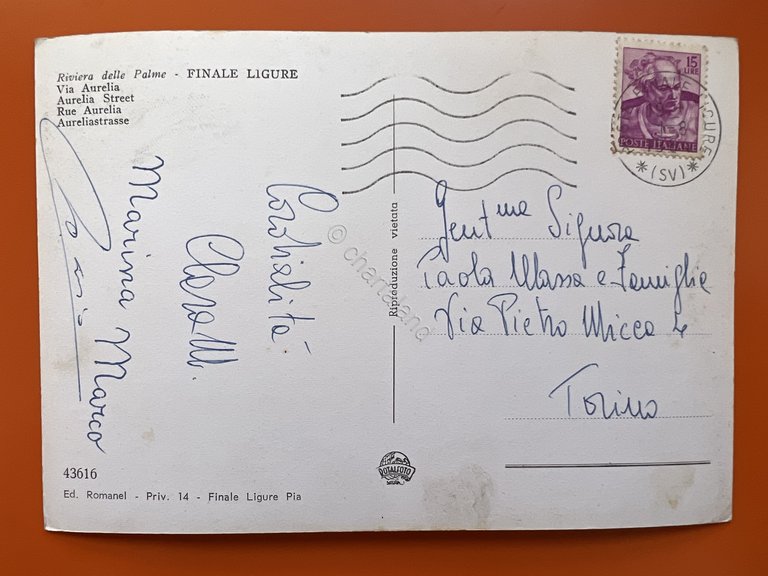 Riviera delle Palme - FINALE LIGURE
Via Aurelia
Aurelia Street
Rue Aurelia
Aureliastrasse
Cordialità
Clara M.
Marina Marco
43616
Ed. Romanel - Priv. 14 - Finale Ligure Pia
Riproduzione vietata
ROTALFOTO
MILANO
15
LIRE
POSTE ITALIANE
LIGURE
*(SV)*
Gent.ma Signora
Paola Massa e Famiglia
Via Pietro Micca
Torino
© chartaland